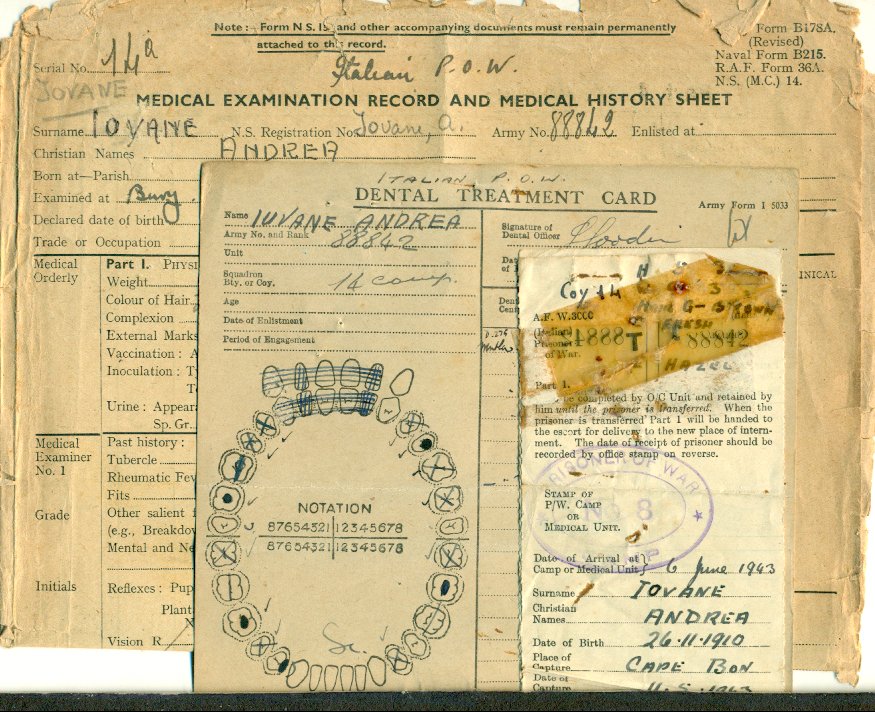 Note :— Form N S. IS and other accompanying documents must remain permanently
attached to this record.
Form B178A.
(Revised)
Naval Form B215.
R.A.F. Form 36A.
N.S. (M.C.) 14.
Serial No. 14a
Italian P.O.W.
JOVANE
MEDICAL EXAMINATION RECORD AND MEDICAL HISTORY SHEET
Surname IOVANE N.S. Registration No. Iovane, A. Army No. 88842 Enlisted at
Christian Names ANDREA
Born at—Parish
Examined at Bury.
Declared date of birth
Trade or Occupation
Medical
Orderly
Part I. PHYSI
Weight
Colour of Hair
Complexion
External Marks
Vaccination : A
Inoculation : T
Urine : Appear
Sp. Gr.
Medical
Examiner
No. 1
Past history :
Tubercle
Rheumatic Fev
Fits
Grade
Other salient f
(e.g., Breakdow
Mental and Ne
Initials
Reflexes : Pup
Plant
Vision R
INICAL
ITALIAN P.O.W.
DENTAL TREATMENT CARD
Army Form I 5033
Name IUVANE ANDREA
Army No. and Rank 88842
Unit
Squadron
Bty. or Coy. 14 Comp.
Age
Date of Enlistment
Period of Engagement
Signature of
Dental Officer
Da
of
Dent
Cent
NOTATION
87654321 12345678
87654321 12345678
Coy 14
A.F. W.3000
(Italian)
Prisoner
of War.
1888
88842
FRESH
HAZEL
Part 1.
be completed by O/C Unit and retained by
him until the prisoner is transferred. When the
prisoner is transferred Part 1 will be handed to
the escort for delivery to the new place of intern-
ment. The date of receipt of prisoner should be
recorded by office stamp on reverse.
PRISONER OF WAR
No 8
CAMP
STAMP OF
P/W. CAMP
OR
MEDICAL UNIT.
Date of Arrival at
Camp or Medical Unit 6 June 1943
Surname IOVANE
Christian
Names ANDREA
Date of Birth 26-11-1910
Place of
Capture CAPE BON
Date of
Capture 11.5.1943